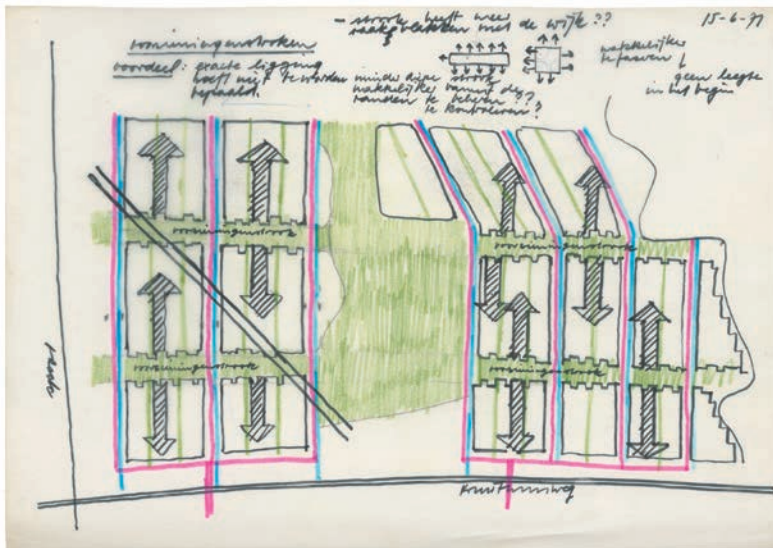 - strook heeft meer
raakvlakken met de wijk ??
15-6-71
voorzieningenstroken
voordeel: exacte ligging
hoeft niet te worden
bepaald.
minder diepe strook
makkelijker vanuit de
randen te beheren ??
te kontroleren ?
makkelijker
te faseren
geen leegte
in het begin
voorzieningenstrook
voorzieningenstrook
voorzieningenstrook
voorzieningenstrook